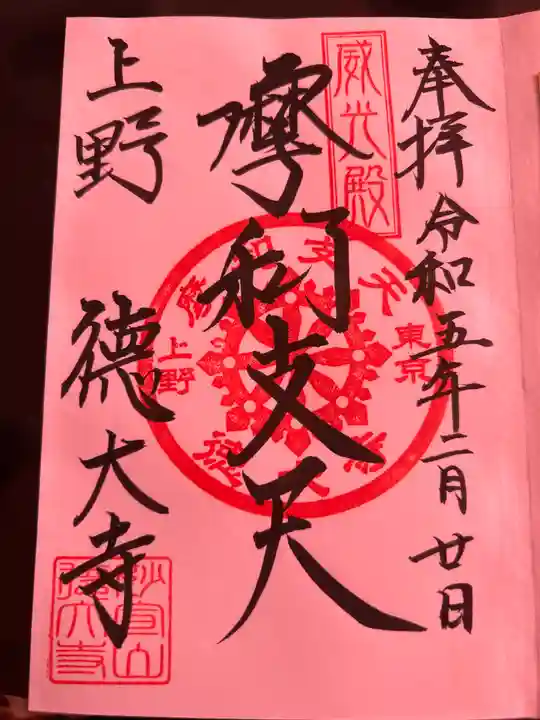 奉拝 令和五年二月廿日
威光殿
摩利支天
上野 徳大寺
東京
上野
妙宣山
徳大寺